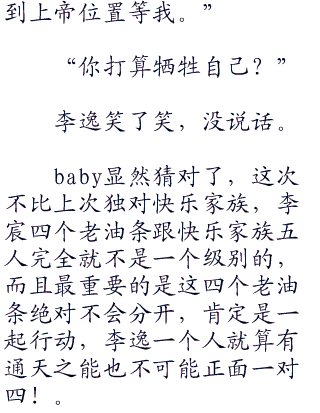 到上帝位置等我。”
“你打算牺牲自己？”
李逸笑了笑，没说话。
baby显然猜对了，这次
不比上次独对快乐家族，李
宸四个老油条跟快乐家族五
人完全就不是一个级别的，
而且最重要的是这四个老油
条绝对不会分开，肯定是一
起行动，李逸一个人就算有
通天之能也不可能正面一对
四！。